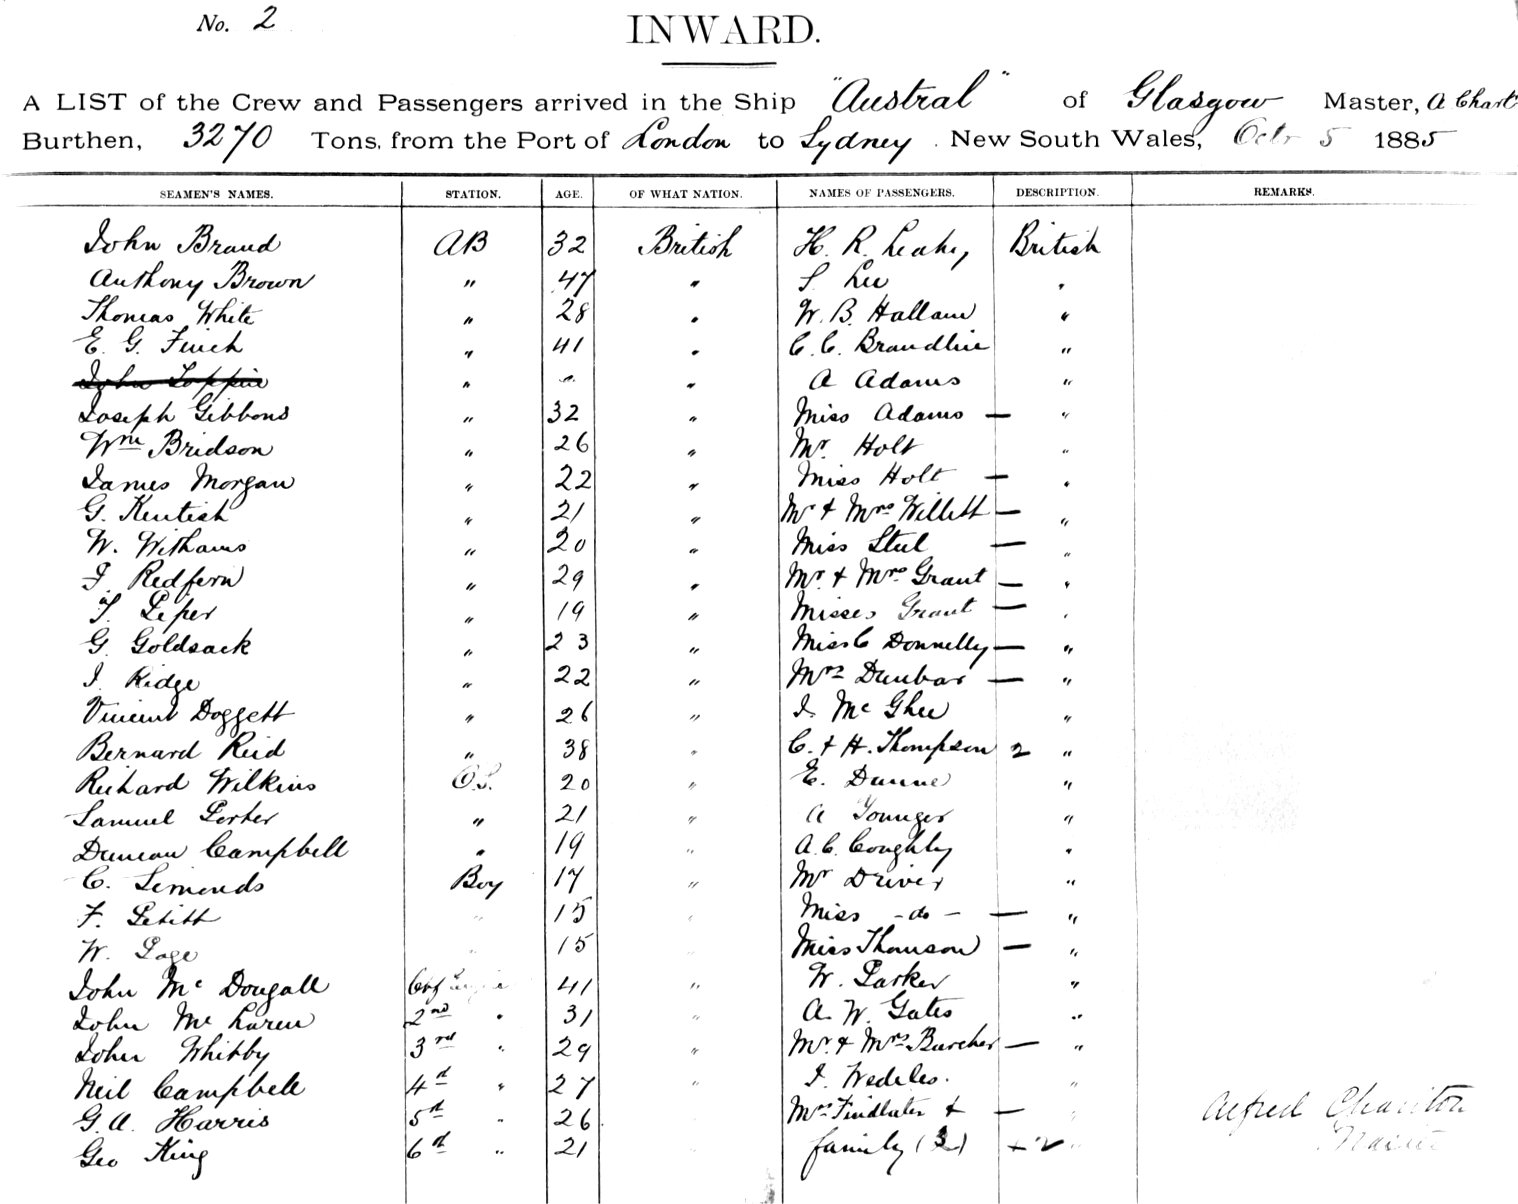 No. 2
INWARD.
A LIST of the Crew and Passengers arrived in the Ship "Austral" of Glasgow Master, A Charl
Burthen, 3270 Tons, from the Port of London to Sydney. New South Wales, Octr 5 1885
SEAMEN'S NAMES. STATION. AGE. OF WHAT NATION. NAMES OF PASSENGERS. DESCRIPTION. REMARKS.
John Brand AB 32 British H. R. Leakey British
Anthony Brown " 47 " S. Lee "
Thomas White " 28 " W. B. Hallam "
E. G. Finch " 41 " C. C. Brandline "
John Toppin " " " A Adams "
Joseph Gibbons " 32 " Miss Adams — "
Wm Bridson " 26 " Mr. Holt "
James Morgan " 22 " Miss Holt — "
G. Kentish " 21 " Mr & Mrs Willett — "
W. Withams " 20 " Miss Steel — "
J. Redfern " 29 " Mr. & Mrs Grant — "
T. Peper " 19 " Misses Grant — "
G. Goldsack " 23 " Miss C Donnelly — "
J. Ridge " 22 " Mrs Dunbar — "
Vincent Doggett " 26 " J. Mc Ghee "
Bernard Reid " 38 " C. & H. Thompson 2 "
Richard Wilkins O.S. 20 " E. Dunne "
Samuel Porter " 21 " A Younger "
Duncan Campbell " 19 " A. C. Coughly "
C. Simonds Boy 17 " Mr Driver "
F. Petitt " 15 " Miss - do - — "
W. Page " 15 " Miss Thomson — "
John Mc Dougall Chf Engine 41 " W. Parker "
John Mc Laren 2nd " 31 " A. W. Gates "
John Whitby 3rd " 29 " Mr. & Mrs Burcher — "
Neil Campbell 4th " 27 " J. Wedeles. "
G. A. Harris 5th " 26 Mrs Findlater & — "
Geo King 6th " 21 family (3) + 2 "
Alfred Charlton
Master